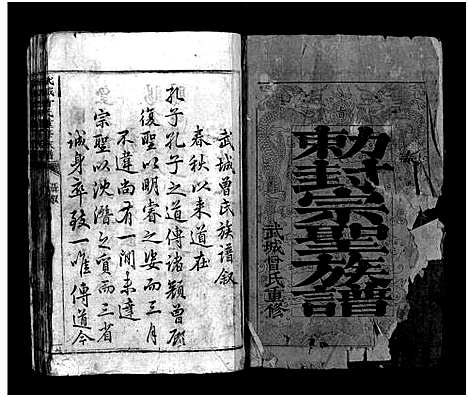 勅封宗聖族譜
武城曾氏重修
武城曾氏族譜叙
春秋以来道在
孔子孔子之道傳諸顏曾顏
復聖以明睿之姿而三月
不違尚有一間未達
宗聖以沈潛之質而三省
誠身卒致一唯傳道今